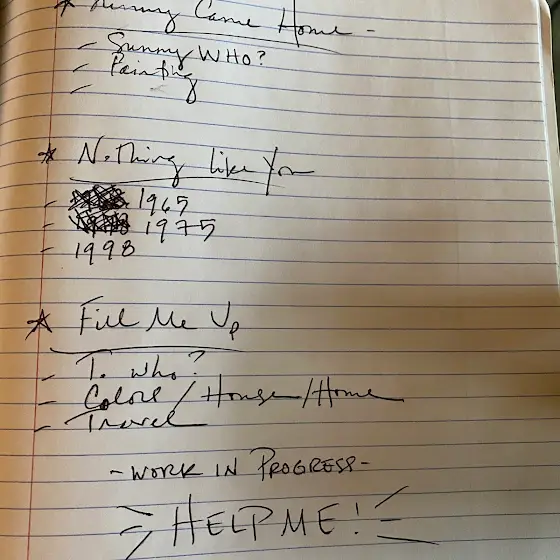 Came Home -
- Sunny WHO?
- Painting
-
* Nothing Like You
- 1965
- 1975
- 1998
* Fill Me Up
- To who?
- Colors / House/Home
- Travel
- WORK IN PROGRESS -
HELP ME!